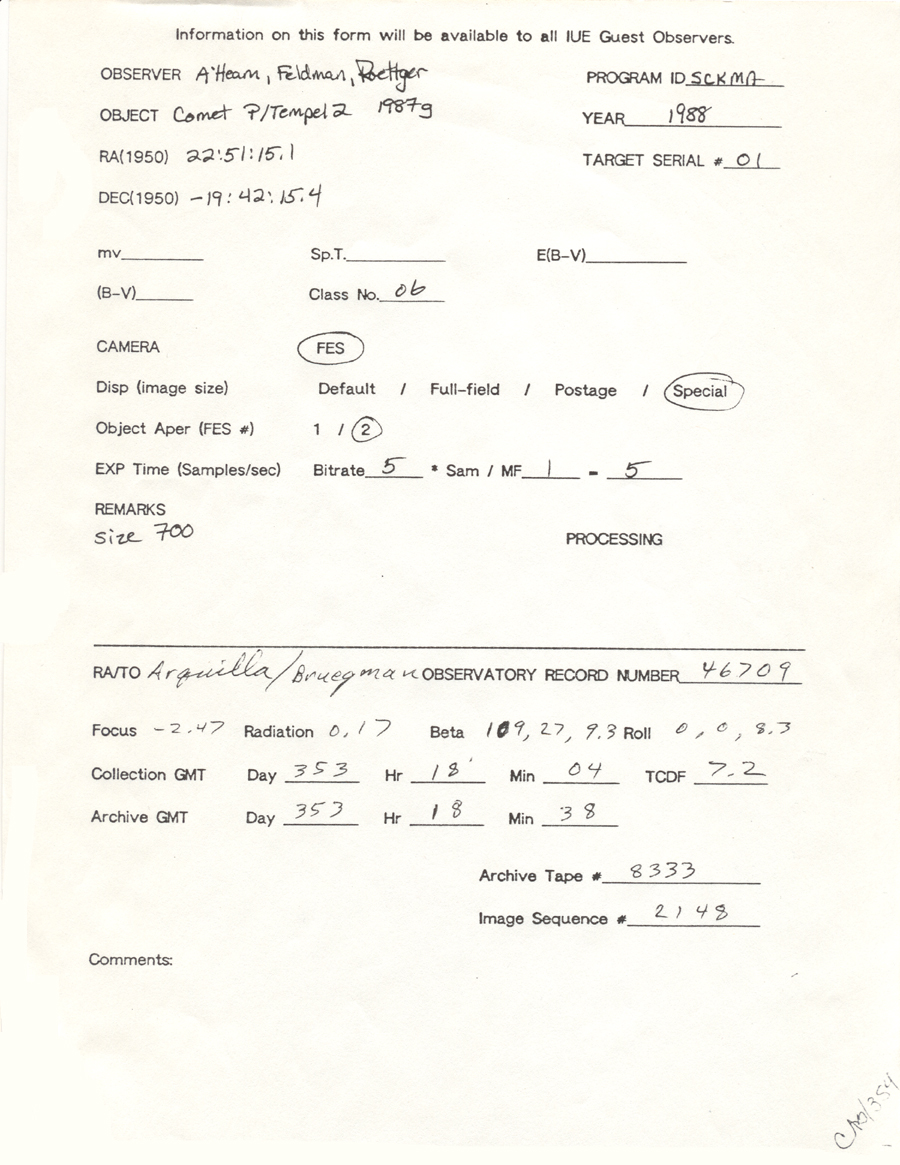 Information on this form will be available to all IUE Guest Observers.
OBSERVER A'Hearn, Feldman, Roettger PROGRAM ID SCKMA
OBJECT Comet P/Tempel 2 1987g YEAR 1988
RA(1950) 22:51:15.1 TARGET SERIAL # 01
DEC(1950) -19:42:15.4
mv Sp.T. E(B-V)
(B-V) Class No. 06
CAMERA FES
Disp (image size) Default / Full-field / Postage / Special
Object Aper (FES #) 1 / 2
EXP Time (Samples/sec) Bitrate 5 * Sam / MF 1 = 5
REMARKS
size 700 PROCESSING
RA/TO Arquilla/Bruegman OBSERVATORY RECORD NUMBER 46709
Focus -2.47 Radiation 0.17 Beta 109, 27, 9.3 Roll 0, 0, 8.3
Collection GMT Day 353 Hr 18 Min 04 TCDF 7.2
Archive GMT Day 353 Hr 18 Min 38
Archive Tape # 8333
Image Sequence # 2148
Comments:
/354